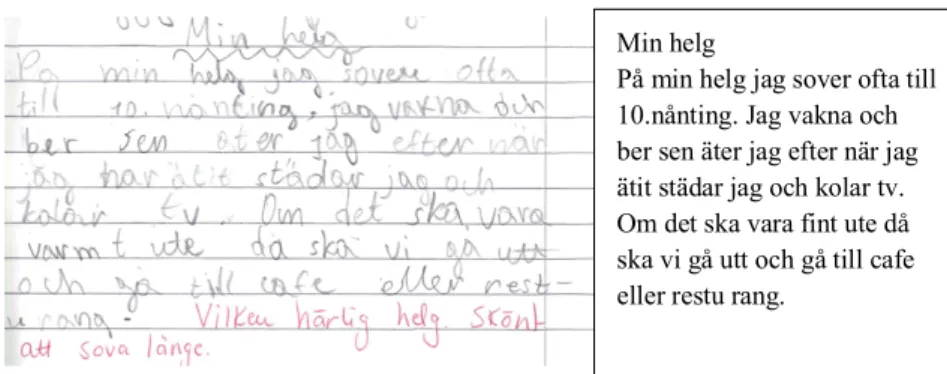 Min helg
På min helg jag sover ofta
till 10.nånting. jag vakna och
ber sen äter jag efter när
jag har ätit städar jag och
kolar tv. Om det ska vara
varmt ute då ska vi gå utt
och gå till cafe eller rest-
urang. Vilken härlig helg. Skönt
att sova länge.
Min helg
På min helg jag sover ofta till
10.nånting. Jag vakna och
ber sen äter jag efter när jag
ätit städar jag och kolar tv.
Om det ska vara fint ute då
ska vi gå utt och gå till cafe
eller restu rang.